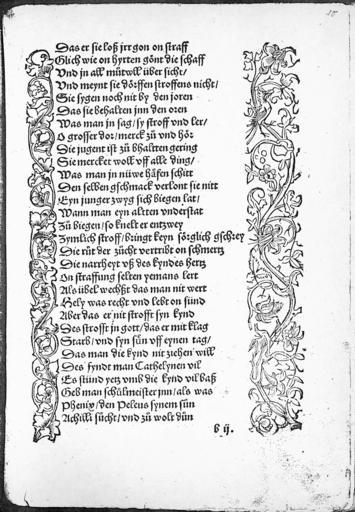 Das er sie loß jrr gon on straff
Glich wie on hyrten gönt die schaff
Vnd in all můtwill über sicht/
Vnd meynt sie dörffen stroffens nicht/
Sie sygen noch nit by den joren
Das sie behalten jnn den oren
Was man in sag/ sy stroff vnd ler/
O grosser dor/ merck zů vnd hör
Die jugent ist zů bhalten gering
Sie mercket woll vff alle ding/
Was man in nüwe häfen schitt
Den selben gschmack verlont sie nitt
Eyn junger zwyg sich biegen lat/
Wann man eyn alten vnderstat
Zů biegen/ so knelt er entzwey
Zymlich stroff/ bringt keyn sörglich gschrey
Die růt der zücht vertribt on schmertz
Die narrheyt vß des kyndes hertz
On straffung selten yemans lert
Als übel wechßt das man nit wert
Hely was recht vnd lebt on sünd
Aber das er nit strofft syn kynd
Des strofft jn gott/ das er mit klag
Starb/ vnd syn sün vff eynen tag/
Das man die kynd nit ziehen will
Des fyndt man Cathelynen vil
Es stünd yetz vmb die kynd vil baß
Geb man schůlmeister jnn/ als was
Phenix/ den Peleus synem sůn
Achilli sůcht/ vnd zů wolt důn
b ij.